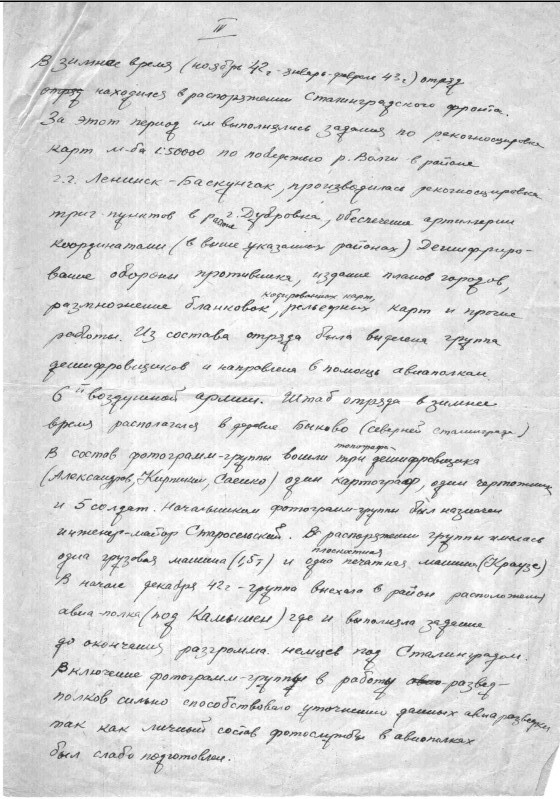 III
В зимнее время (ноябрь 42г - январь-февраль 43г.) отряд
отряд находился в распоряжении Сталинградского фронта.
За этот период им выполнялись задания по рекогносцировке
карт м-ба 1:50000 по побережью р. Волги в районе
г.г. Ленинск - Баскунчак, производилась рекогносцировка
триг-пунктов в р-оне г. Дубровка, обеспечение артиллерии
координатами (в выше указанных районах) Дешифриро-
вание обороны противника, издание планов городов,
размножение бланковок, кодированных карт, рельефных карт и прочие
работы. Из состава отряда была выделена группа
дешифровщиков и направлена в помощь авиаполкам
6ой воздушной армии. Штаб отряда в зимнее
время располагался в деревне Быково (северней Сталинграда)
В состав фотограмм-группы вошли три топографа-дешифровщика
(Александров, Кирпичин, Саенко) один картограф, один чертежник
и 5 солдат. Начальником фотограмм-группы был назначен
инженер-майор Старосельский. В распоряжении группы имелась
одна грузовая машина (1,5т) и одна плоскатная печатная машина (Краузе)
В начале декабря 42г - группа выехала в район расположения
авиа-полка (под Камышен) где и выполняла задание
до окончания разгрома немцев под Сталинградом.
Включение фотограмм-группы в работу авио-развед-
полков сильно способствовало уточнению данных авиаразведки
так как личный состав фотослужбы в авиаполках
был слабо подготовлен.